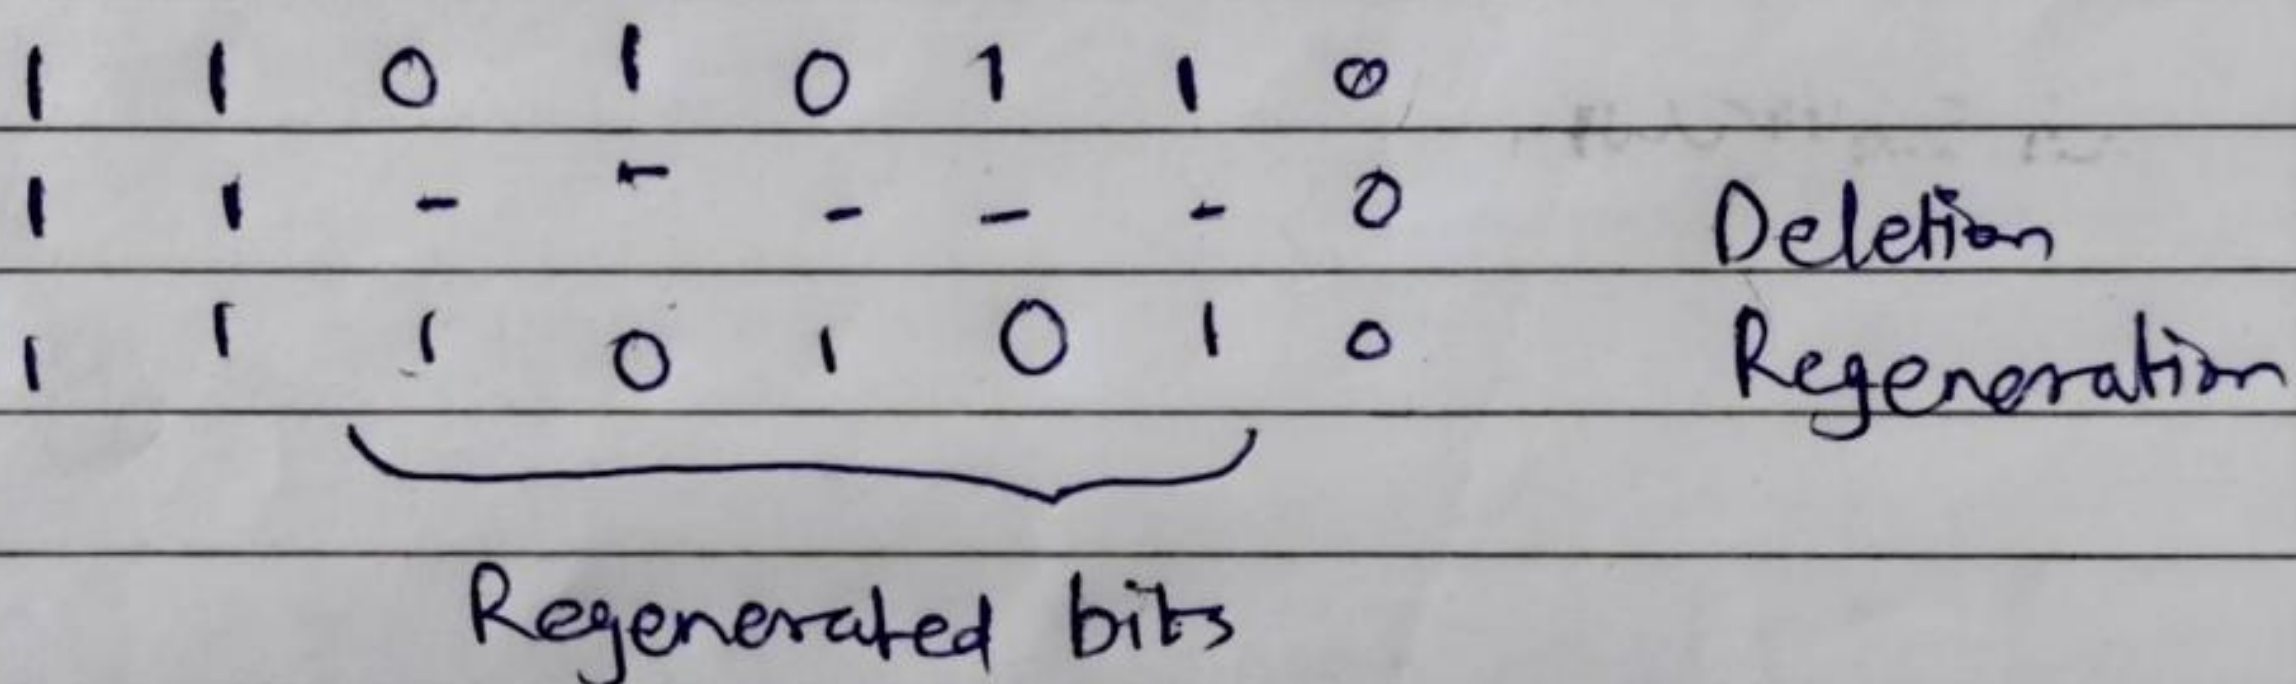 1 1 0 1 0 1 1 0
1 1 - - - - - 0 Deletion
1 1 1 0 1 0 1 0 Regeneration
Regenerated bits